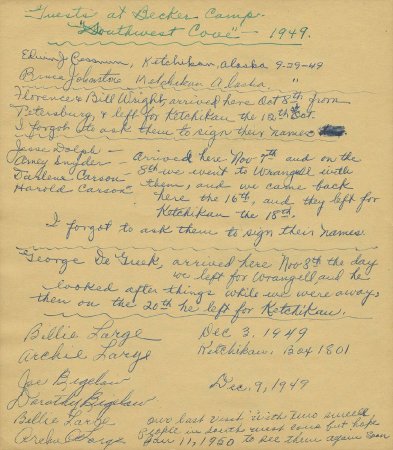 Guests at Beckers Camp.
"Southwest Cove" - 1949.
Edwin J , Ketchikan, Alaska 9-29-49
Bruce Johnstone Ketchikan Alaska "
Florence & Bill Wright, arrived here Oct 8th from
Petersburg, & left for Ketchikan the 12th Oct.
I forgot to ask them to sign their names
Jesse Dolph -
Amey Snyder - arrived here Nov 7th and on the
Darlene Carson - 8th we went to Wrangell with
Harold Carson - them, and we came back
here the 16th, and they left for
Ketchikan the 18th.
I forgot to ask them to sign their names
George De Greek, arrived here Nov 8th the day
we left for Wrangell and he
looked after things while we were away,
then on the 20th he left for Ketchikan.
Billie Large Dec 3, 1949
Archie Large Ketchikan, Box 1801
Joe Bigelow Dec. 9, 1949
Dorothy Bigelow
Billie Large our last visit with two swell
Archie Large people in south west cove but hope
Jan 11, 1950 to see them again soon